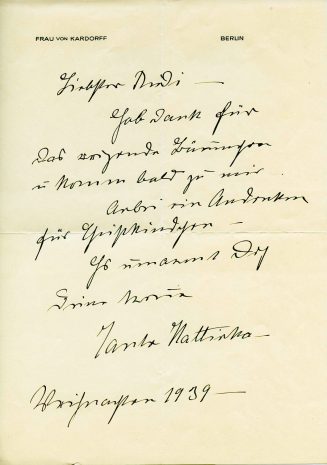 FRAU VON KARDORFF BERLIN
Liebster Rudi —
Hab Dank für
das reizende Bäumchen
u komm bald zu mir.
Anbei ein Andenken
für Christkindchen —
Es umarmt Dich
Deine treue
Tante
Weihnachten 1939 —